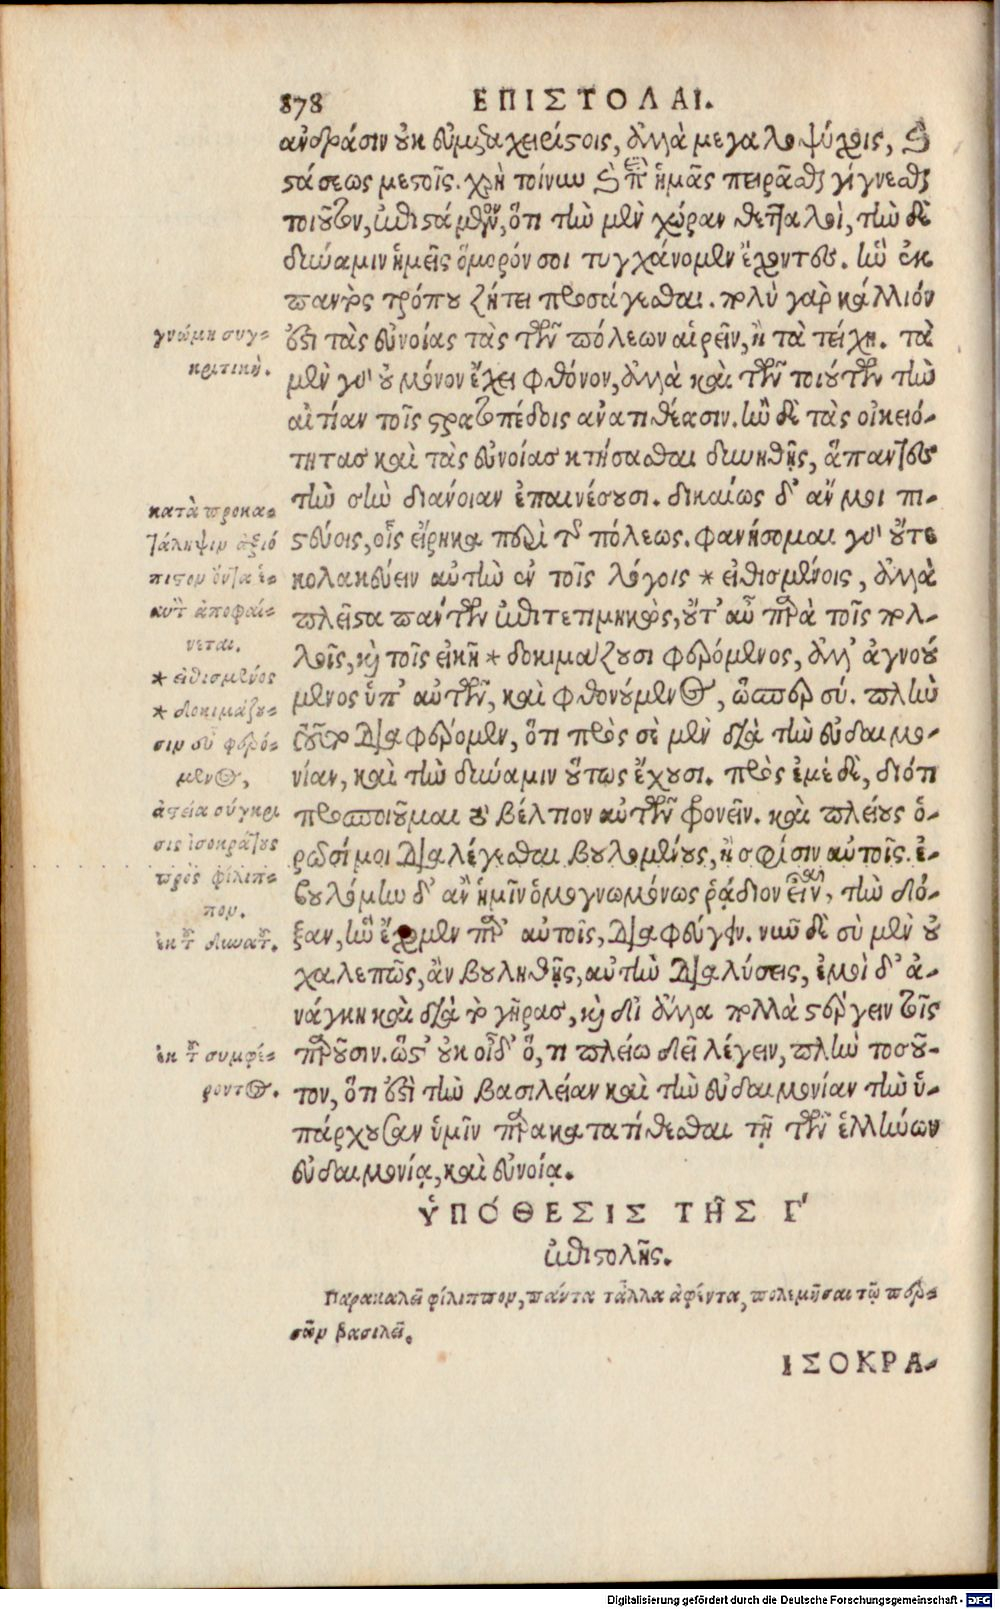 878 ΕΠΙΣΤΟΛΑΙ.
ἀνδράσιν οὐκ εὐμεταχειρίστοις, ἀλλὰ μεγαλοψύχοις, καὶ
στάσεως μεστοῖς. χρὴ τοίνυν καὶ περὶ ἡμᾶς πειρᾶσθαι γίγνεσθαι
τοιοῦτον, ἐπιστάμενον, ὅτι τὴν μὲν χώραν θετταλοὶ, τὴν δὲ
δύναμιν ἡμεῖς ὅμορόν σοι τυγχάνομεν ἔχοντες. ἣν ἐκ
παντὸς τρόπου ζήτει προσάγεσθαι. πολὺ γὰρ κάλλιόν
ἐστι τὰς εὐνοίας τὰς τῶν πόλεων αἱρεῖν, ἢ τὰ τείχη. τὰ
μὲν γὰρ οὐ μόνον ἔχει φθόνον, ἀλλὰ καὶ τῶν τοιούτων τὴν
αἰτίαν τοῖς στρατοπέδοις ἀνατιθέασιν. ἢν δὲ τὰς οἰκειό-
τητας καὶ τὰς εὐνοίας κτήσασθαι δυνηθῇς, ἅπαντες
τὴν σὴν διάνοιαν ἐπαινέσουσι. δικαίως δ' ἄν μοι πι-
στεύοις, οἷς εἴρηκα περὶ τῆς πόλεως. φανήσομαι γὰρ οὔτε
κολακεύειν αὐτὴν ἐν τοῖς λόγοις * εἰθισμένοις, ἀλλὰ
πλεῖστα πάντων ἐπιτετιμηκὼς, οὔτ' αὖ παρὰ τοῖς πολ-
λοῖς, καὶ τοῖς εἰκῆ * δοκιμάζουσι φερόμενος, ἀλλ' ἀγνοού
μενος ὑπ' αὐτῶν, καὶ φθονούμενος, ὥσπερ σύ. πλὴν
τοῦτο διαφέρομεν, ὅτι πρὸς σὲ μὲν διὰ τὴν εὐδαιμο-
νίαν, καὶ τὴν δύναμιν οὕτως ἔχουσι. πρὸς ἐμὲ δὲ, διότι
προσποιοῦμαι τὸ βέλτιον αὐτῶν φρονεῖν. καὶ πλείους ὁ-
ρῶσί μοι διαλέγεσθαι βουλομένους, ἢ σφίσιν αὐτοῖς. ἐ-
βουλόμην δ' ἂν ἡμῖν ὁμογνωμόνως ῥᾴδιον εἶναι, τὴν δό-
ξαν, ἣν ἔχομεν παρ' αὐτοῖς, διαφεύγειν. νῦν δὲ σὺ μὲν οὐ
χαλεπῶς, ἂν βουληθῇς, αὐτὴν διαλύσεις, ἐμοὶ δ' ἀ-
νάγκη καὶ διὰ τὸ γῆρας, καὶ δι' ἄλλα πολλὰ στέργειν τοῖς
παροῦσιν. ὥστ' οὐκ οἶδ' ὅ, τι πλείω δεῖ λέγειν, πλὴν τοσοῦ-
τον, ὅτι ἐστὶ τὴν βασιλείαν καὶ τὴν εὐδαιμονίαν τὴν ὑ-
πάρχουσαν ὑμῖν παρακατατίθεσθαι τῇ τῶν ἑλλήνων
εὐδαιμονίᾳ, καὶ εὐνοίᾳ.
ὙΠΌΘΕΣΙΣ ΤΗ͂Σ Γ'
ἐπιστολῆς.
Παρακαλεῖ φίλιππον, πάντα τἄλλα ἀφέντα, πολεμῆσαι τῷ περ-
σῶν βασιλεῖ.
ΙΣΟΚΡΑ-
γνώμη συγ-
κριτική.
κατὰ προκα-
τάληψιν ἀξιό
πιστον ὄντα ἑ-
αυτὸν ἀποφαί-
νεται.
* εἰθισμένος
* δοκιμάζου-
σιν οὐ φερό-
μενος,
ἀστεία σύγκρι
σις ἰσοκράτους
πρὸς φίλιπ-
πον.
ἐκ τοῦ δυνατοῦ.
ἐκ τοῦ συμφέ-
ροντος.
Digitalisierung gefördert durch die Deutsche Forschungsgemeinschaft - DFG